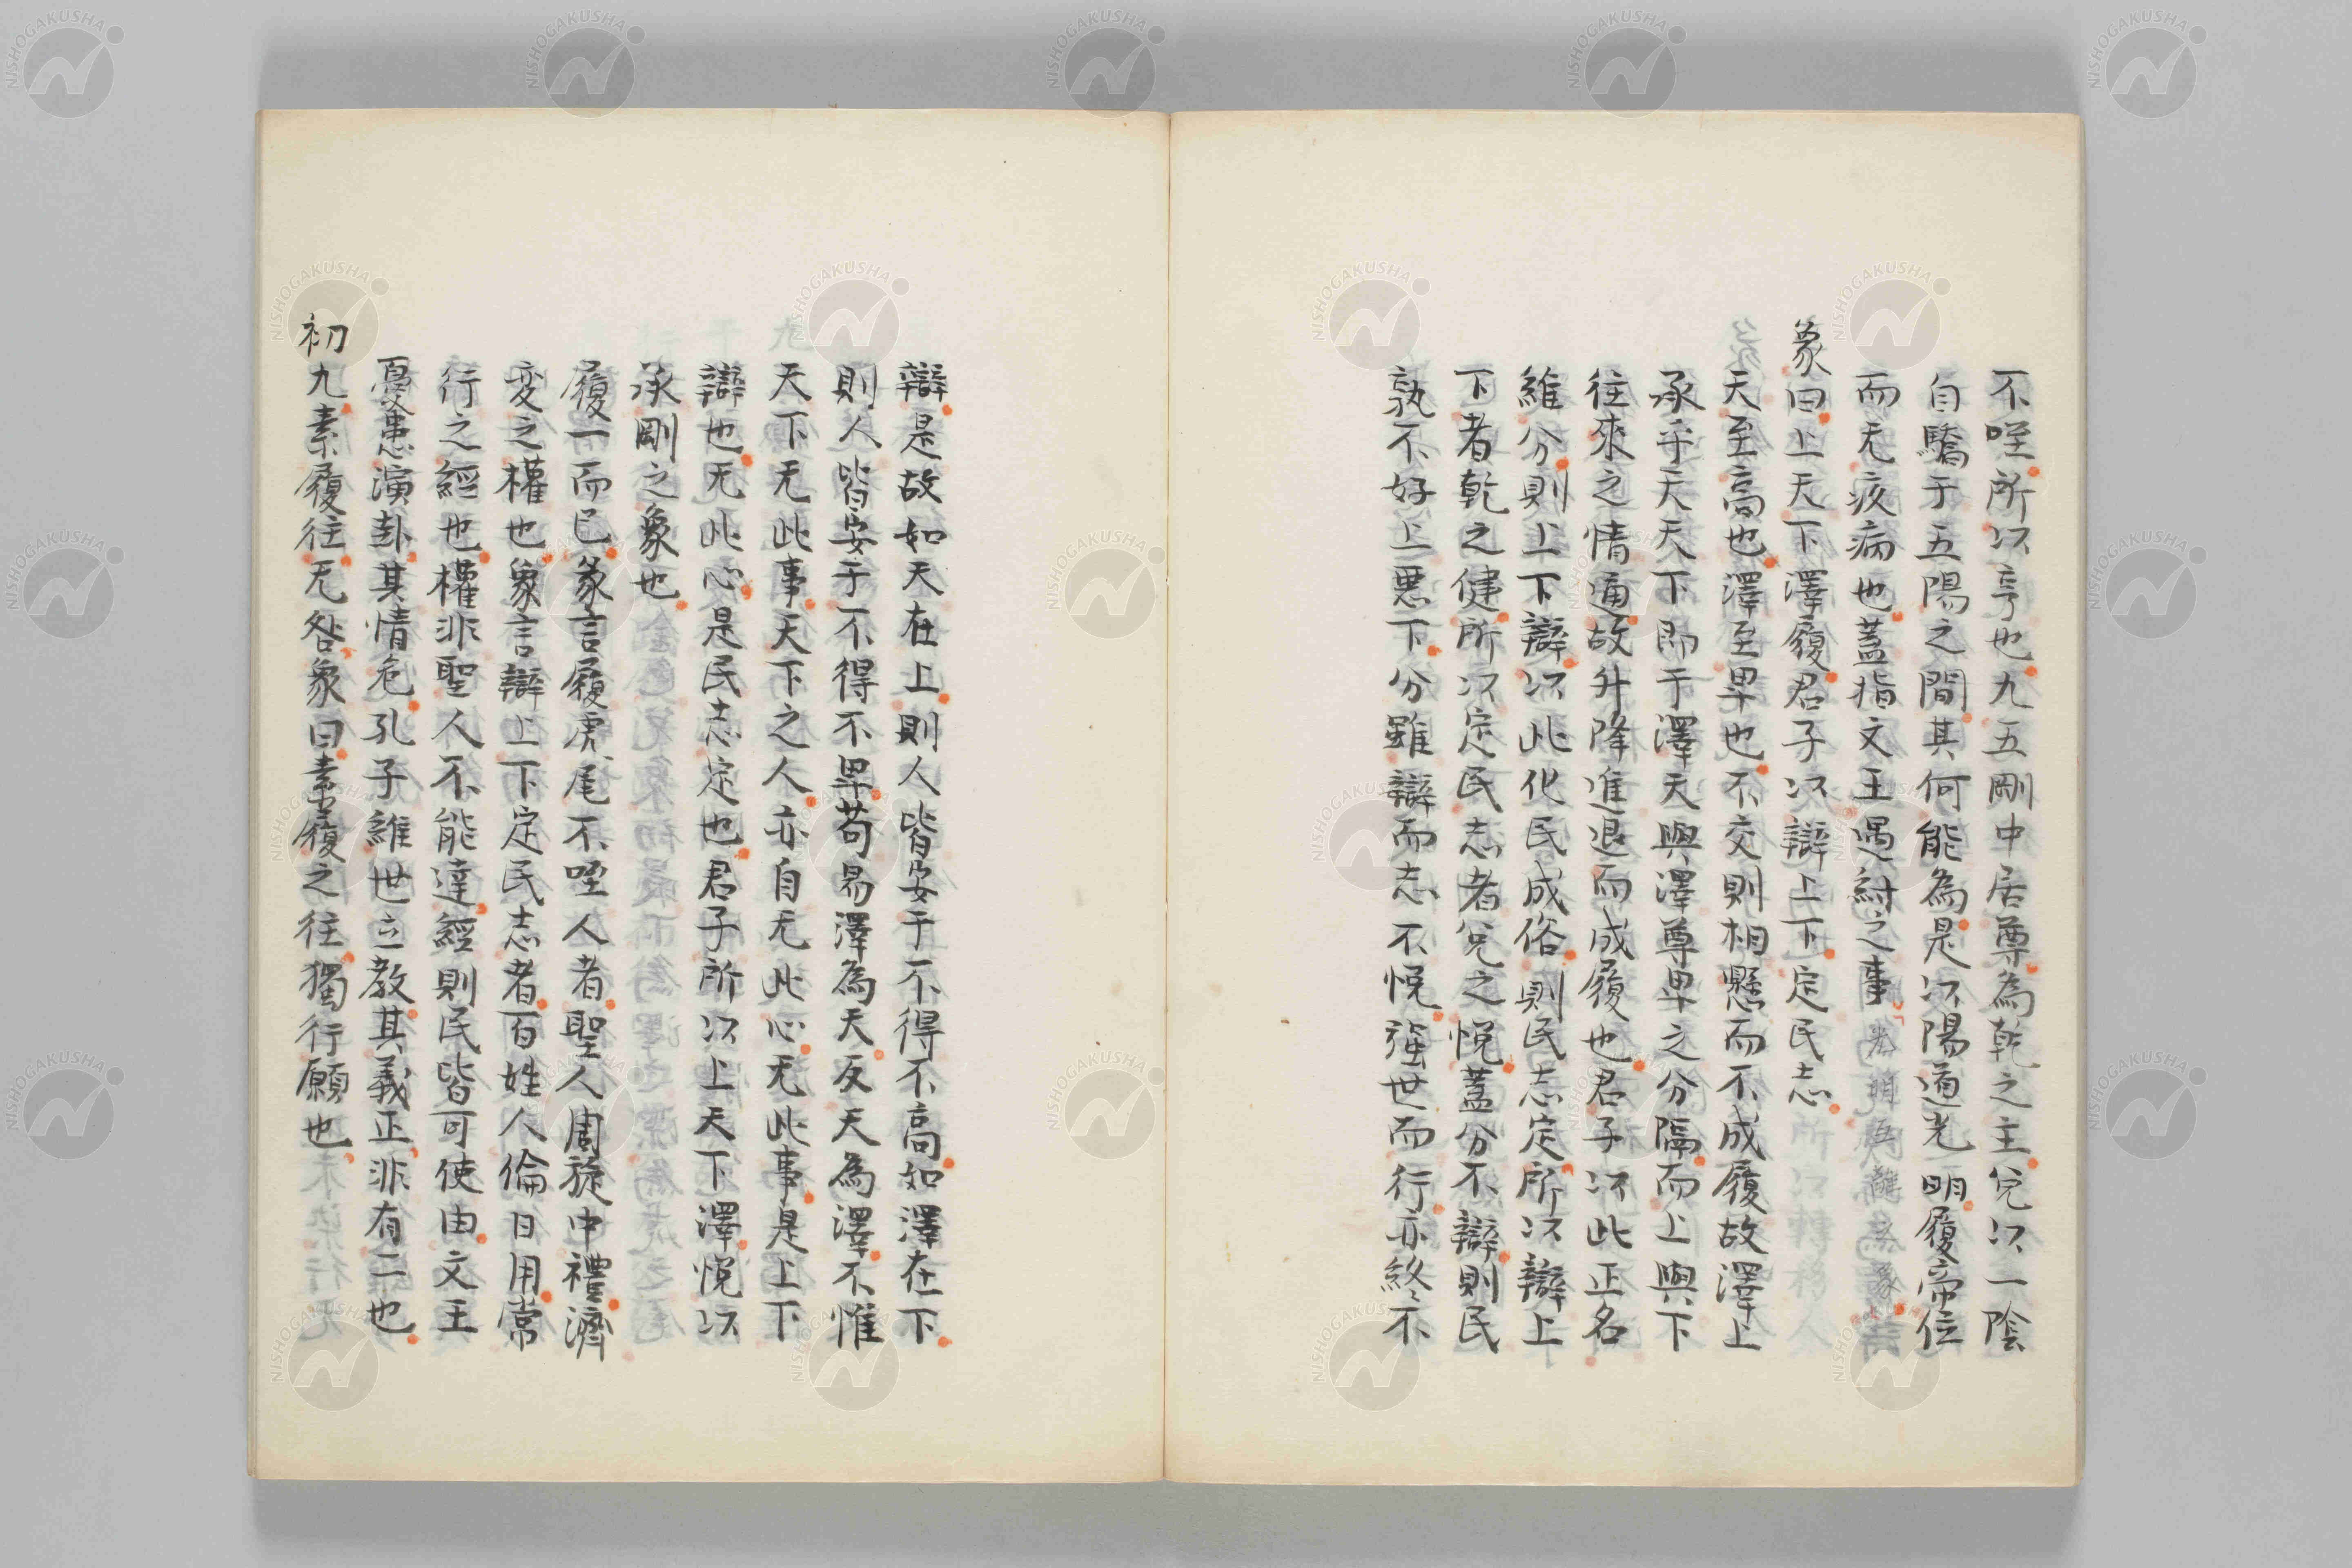 不咥所以亨也九五剛中居尊為乾之主兌以一陰
自驕于五陽之間其何能為是以陽道光明履帝位
而无疚病也蓋指文王遇紂之事
象曰上天下澤履君子以辯上下定民志
天至高也澤至卑也不交則相懸而不成履故澤上
承乎天天下即于澤天與澤尊卑之分隔而上與下
往來之情通故升降進退而成履也君子以此正名
維分則上下辯以此化民成俗則民志定所以辯上
下者乾之健所以定民志者兌之悦蓋分不辯則民
孰不好上悪下分雖辯而志不悦強世而行亦終不
辯是故如天在上則人皆安于不得不高如澤在下
則人皆安于不得不卑苟易澤為天反天為澤不惟
天下无此事天下之人亦自无此心无此事是上下
辯也无此心是民志定也君子所以上天下澤悦以
承剛之象也
履一而已彖言履虎尾不咥人者聖人周旋中禮濟
変之權也象言辯上下定民志者百姓人倫日用常
行之經也權非聖人不能達經則民皆可使由文王
憂患演卦其情危孔子維世立教其義正非有二也
初九素履往无咎象曰素履之往獨行願也
NISHOGAKUSHA